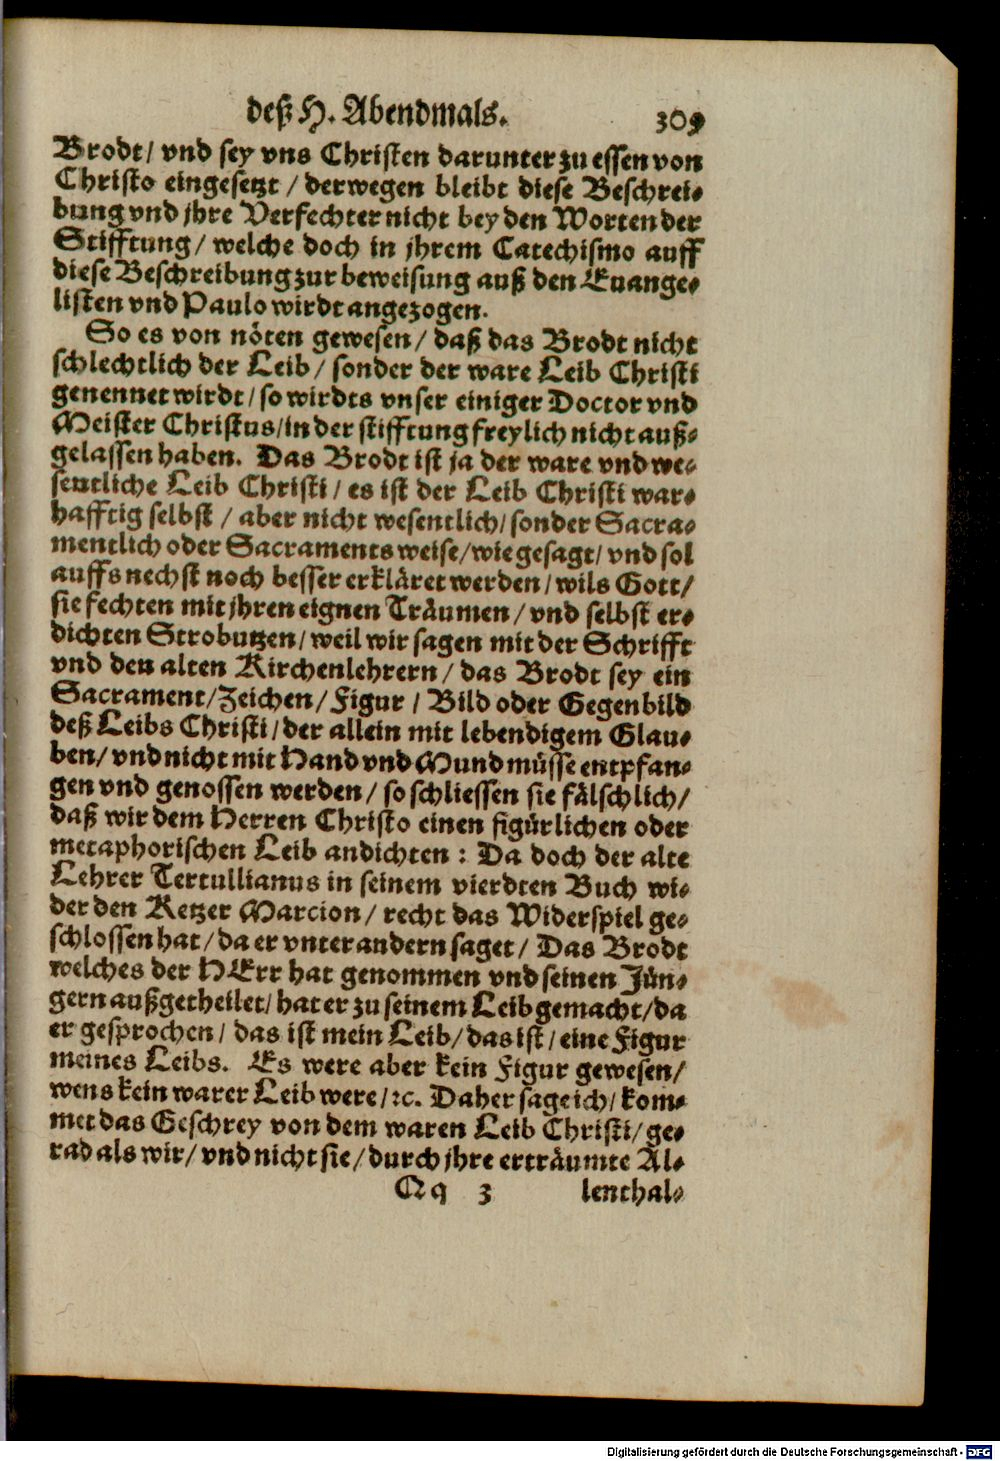 deß H. Abendmals. 309
Brodt/ vnd sey vns Christen darunter zu essen von
Christo eingesetzt / derwegen bleibt diese Beschrei-
bung vnd jhre Verfechter nicht bey den Worten der
Stifftung/ welche doch in jhrem Catechismo auff
diese Beschreibung zur beweisung auß den Euange-
listen vnd Paulo wirdt angezogen.
So es von nöten gewesen/ daß das Brodt nicht
schlechtlich der Leib/ sonder der ware Leib Christi
genennet wirdt/ so wirdts vnser einiger Doctor vnd
Meister Christus/ in der stifftung freylich nicht auß-
gelassen haben. Das Brodt ist ja der ware vnd we-
sentliche Leib Christi/ es ist der Leib Christi war-
hafftig selbst / aber nicht wesentlich/ sonder Sacra-
mentlich oder Sacraments weise/ wie gesagt/ vnd sol
auffs nechst noch besser erkläret werden/ wils Gott/
sie fechten mit jhren eignen Träumen/ vnd selbst er-
dichten Strobutzen/ weil wir sagen mit der Schrifft
vnd den alten Kirchenlehrern/ das Brodt sey ein
Sacrament/ Zeichen/ Figur / Bild oder Gegenbild
deß Leibs Christi/ der allein mit lebendigem Glau-
ben/ vnd nicht mit Hand vnd Mund müsse entpfan-
gen vnd genossen werden/ so schliessen sie fälschlich/
daß wir dem Herren Christo einen figürlichen oder
metaphorischen Leib andichten : Da doch der alte
Lehrer Tertullianus in seinem vierdten Buch wi-
der den Ketzer Marcion/ recht das Widerspiel ge-
schlossen hat/ da er vnter andern saget/ Das Brodt
welches der HErr hat genommen vnd seinen Jün-
gern außgetheilet/ hat er zu seinem Leib gemacht/ da
er gesprochen/ das ist mein Leib/ das ist/ eine Figur
meines Leibs. Es were aber kein Figur gewesen/
wens kein warer Leib were/ ꝛc. Daher sage ich/ kom-
met das Geschrey von dem waren Leib Christi/ ge-
rad als wir/ vnd nicht sie/ durch jhre erträumte Al-
Qq 3 lenthal-
Digitalisierung gefördert durch die Deutsche Forschungsgemeinschaft - DFG